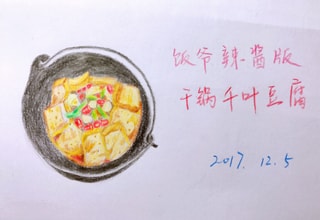 饭爷辣酱版
干锅千叶豆腐
2017.12.5